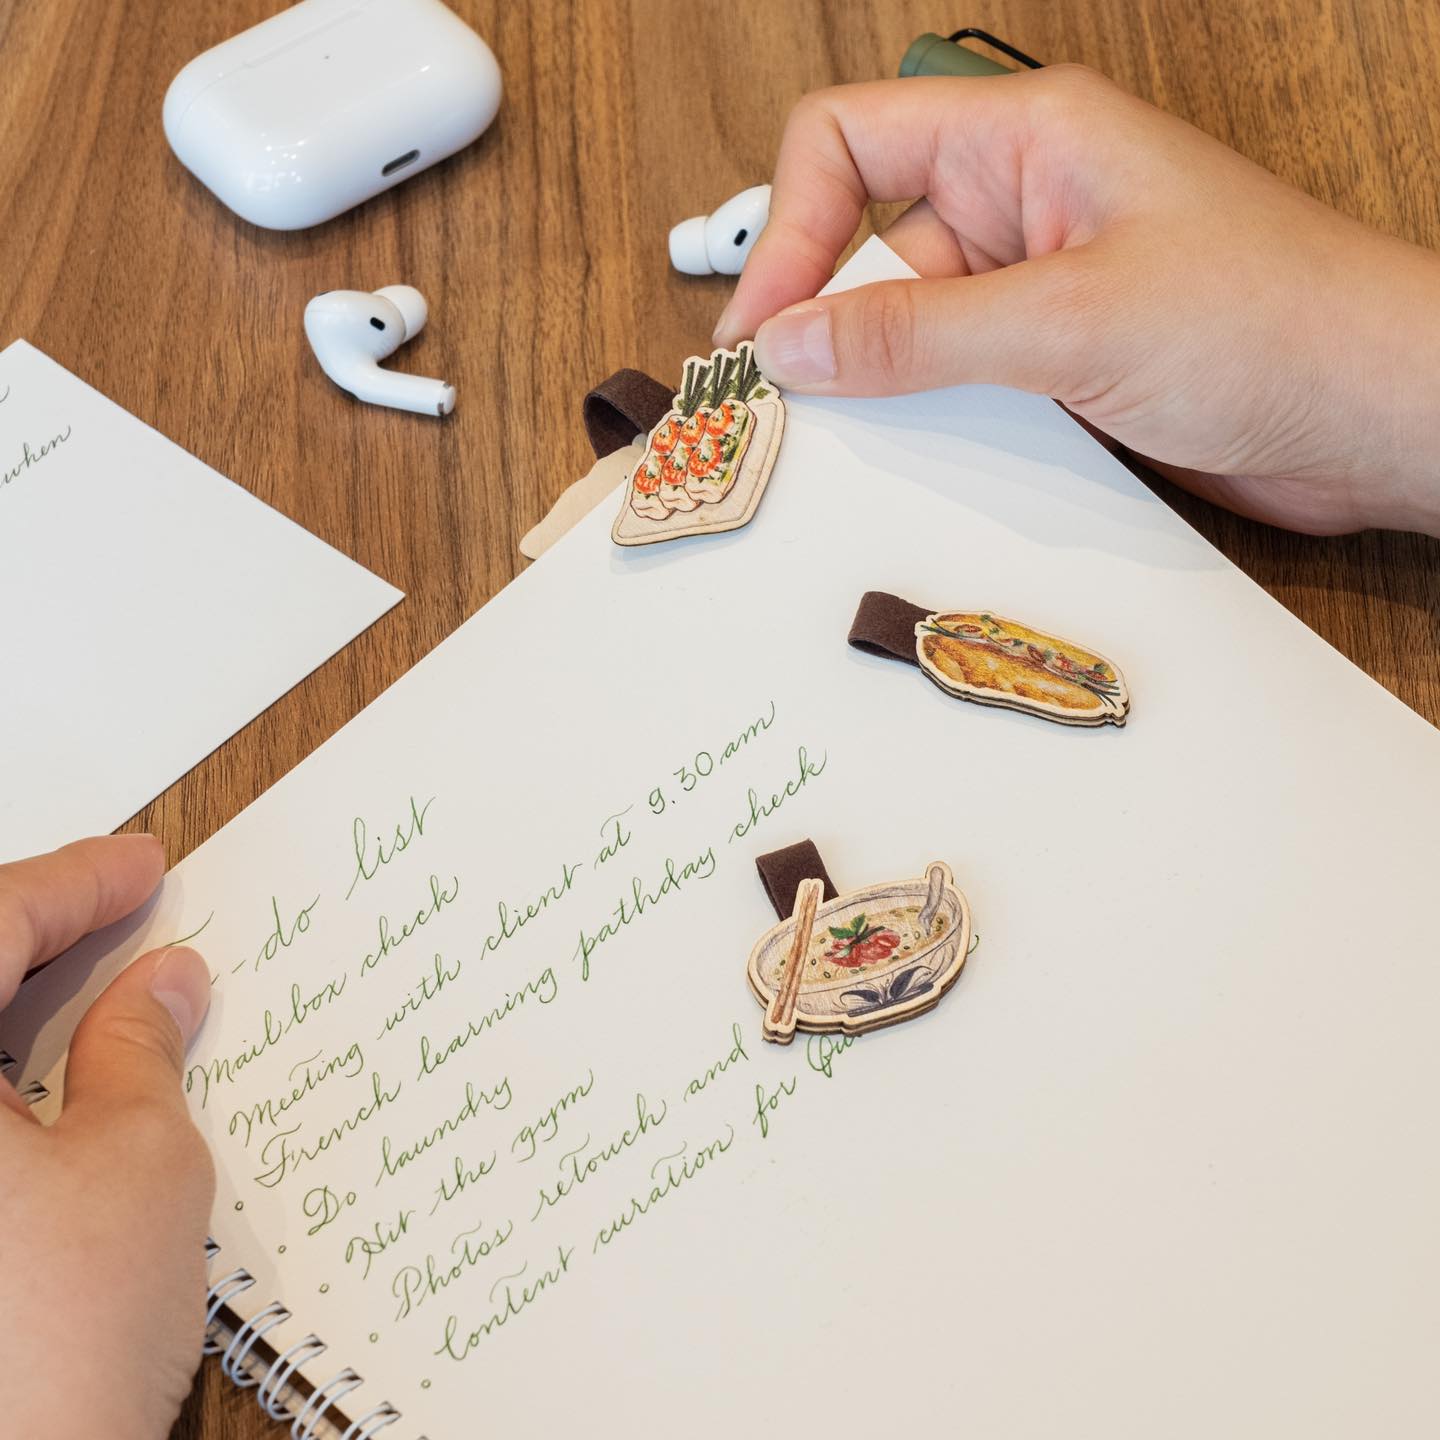 when
- do list
Mailbox check
Meeting with client at 9.30am
French learning pathday check
Do laundry
Hit the gym
Photos retouch and
Content curation for